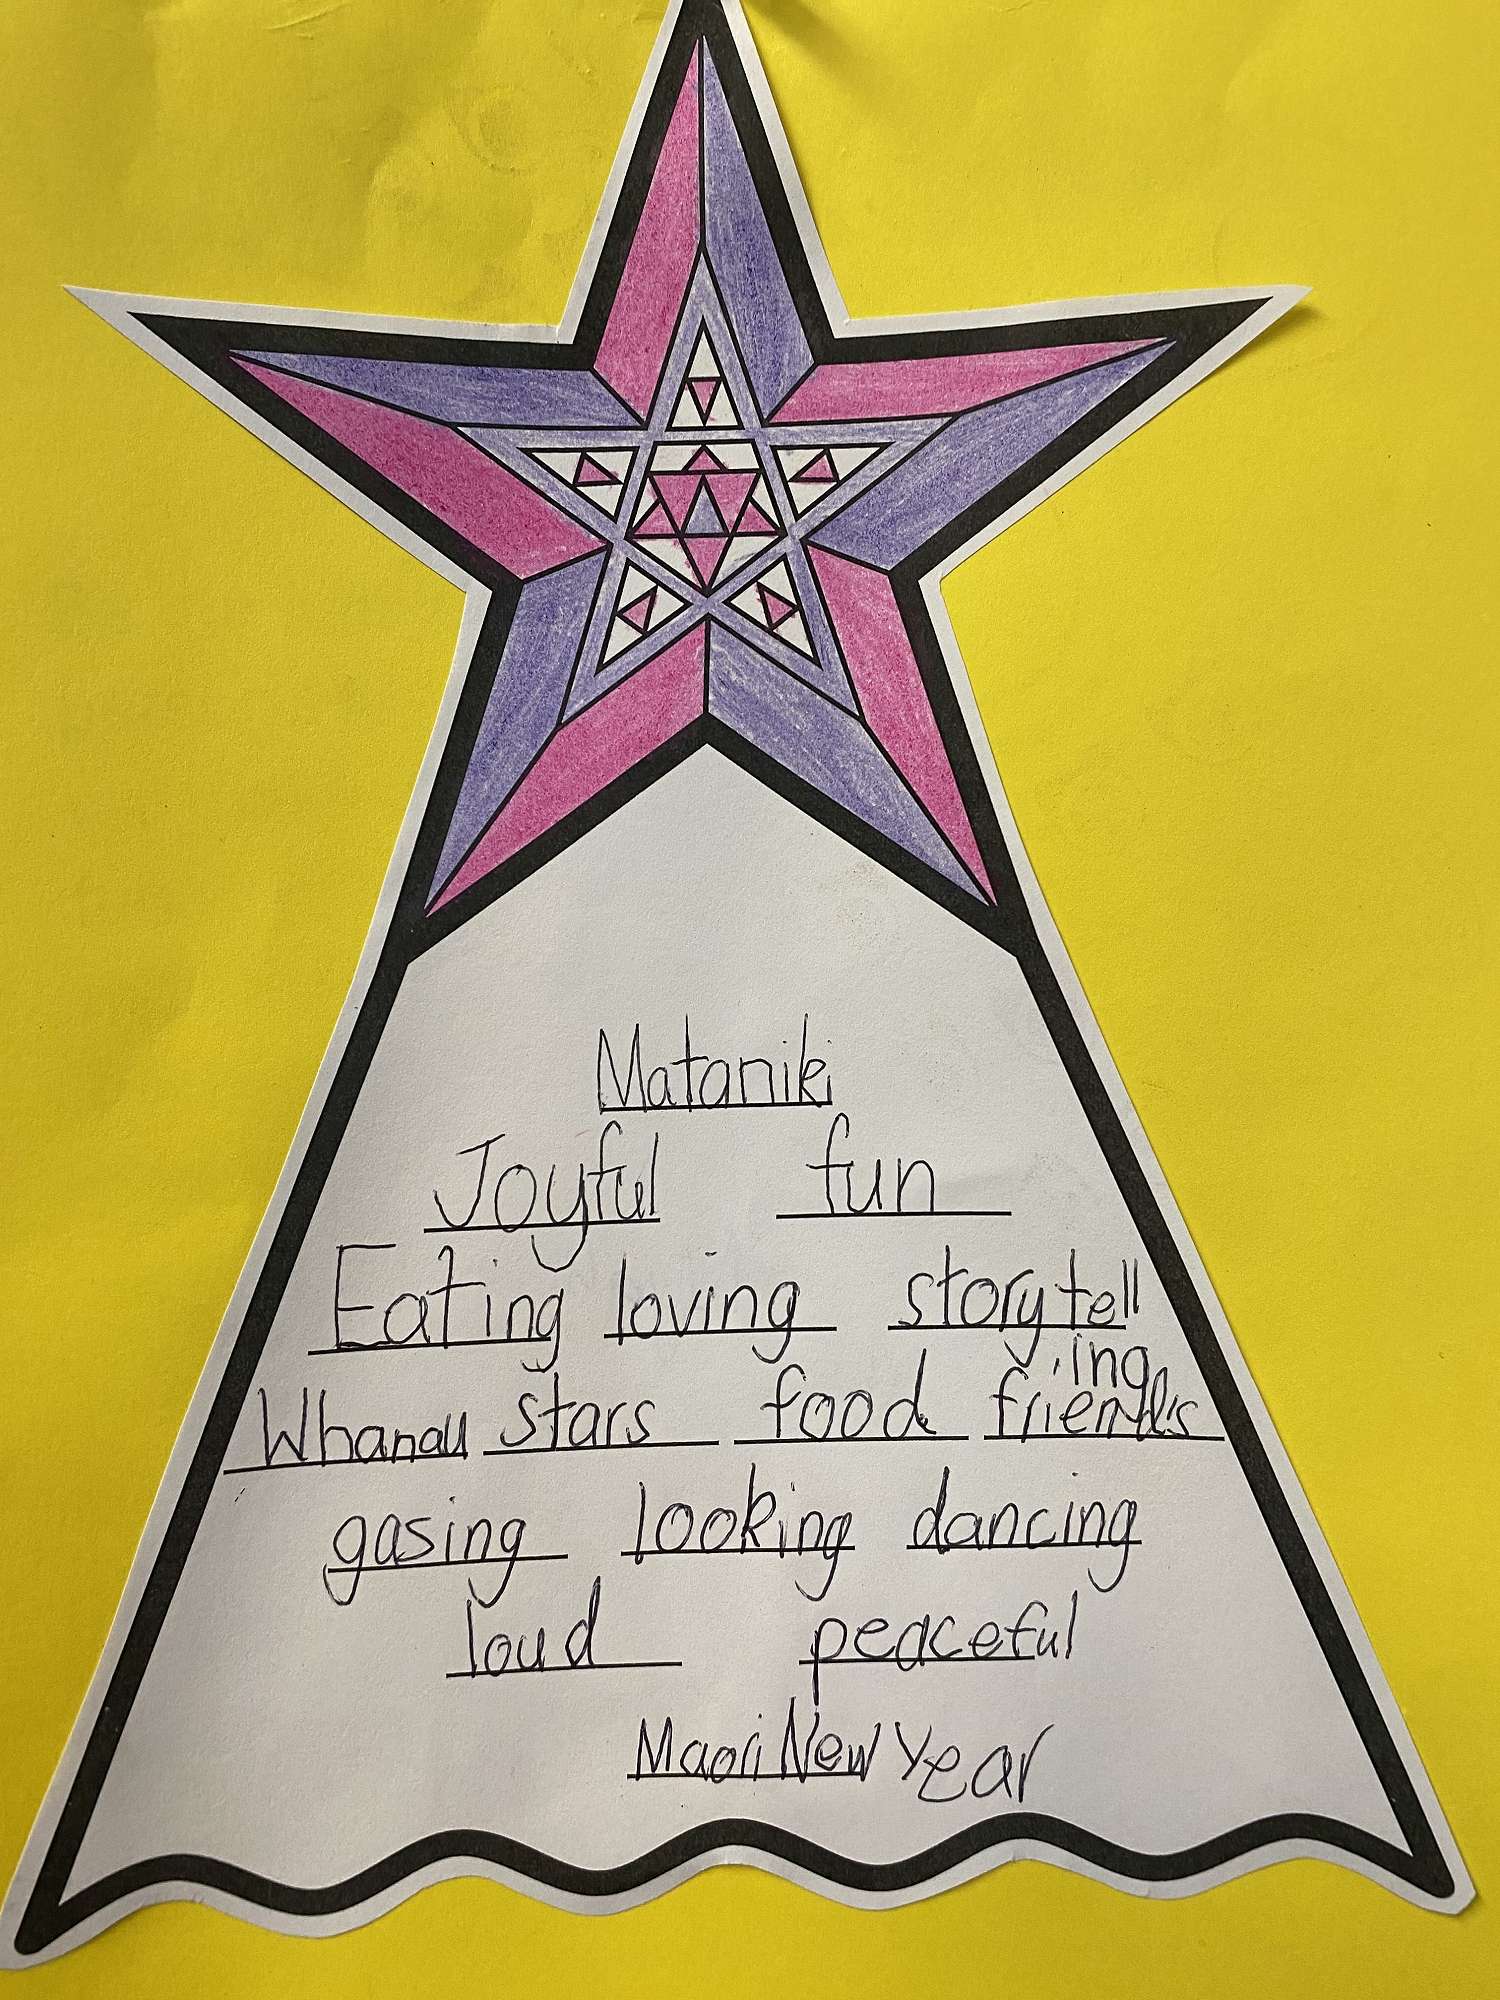 Mataniki
Joyful fun
Eating loving storytell
ing
Whanau stars food friends
gasing looking dancing
loud peaceful
Maori New Year